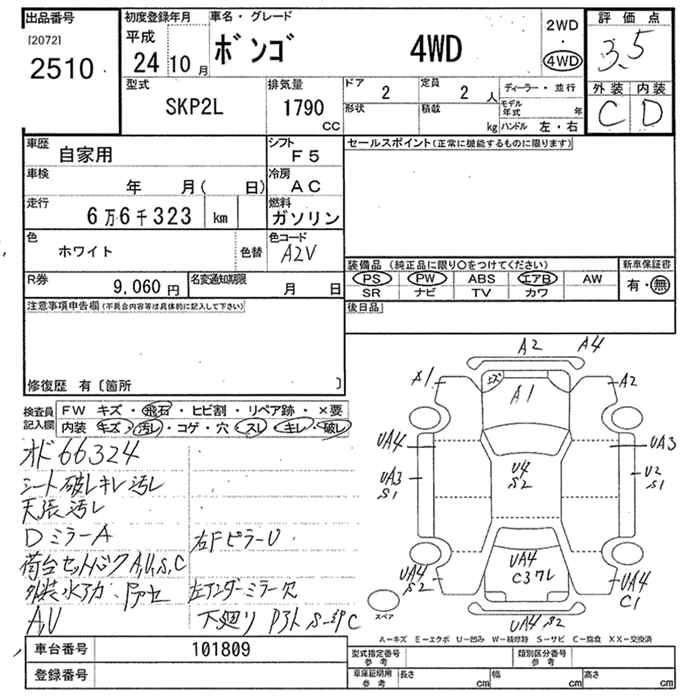 出品番号
[2072]
2510
初度登録年月
平成
24 10 月
車名・グレード
ボンゴ 4WD
2WD
4WD
評価点
3.5
外装 内装
C D
型式
SKP2L
排気量
1790
CC
ドア
2
定員
2 人
形状
積載
kg
ディーラー・並行
モデル年式 年
ハンドル 左・右
車歴
自家用
シフト
F5
車検
年 月( 日)
冷房
AC
走行
6万6千323 km
燃料
ガソリン
色
ホワイト
色替
色コード
A2V
R券
9,060 円
名変通知期限
月 日
セールスポイント(正常に機能するものに限ります)
装備品 (純正品に限り○をつけてください)
PS PW ABS エアB AW
SR ナビ TV カワ
新車保証書
有・無
後日品
注意事項申告欄(不具合内容等は具体的に記入して下さい)
修復歴 有〔箇所 〕
検査員記入欄
FW キズ・飛石・ヒビ割・リペア跡・×要
内装 キズ・汚レ・コゲ・穴・スレ・キレ・破レ
オド66324
シート破レキレ汚レ
天張汚レ
DミラーA
右FピラーU
荷台セットバックA,U,S,C
外装水アカ
左アンダーミラー欠
A,U
下廻り
A2 A4
A1 キズ A1 A2
UA4 UA3
UA3 S1
U4 S2
U2 S1
UA4 S2
UA4
UA4 C1
UA4 S2
スペア
A-キズ E-エクボ U-凹み W-補修跡 S-サビ C-腐食 XX-交換済
車台番号
101809
登録番号
型式指定番号 参考
類別区分番号 参考
車庫証明用 参考
長さ cm
幅 cm
高さ cm